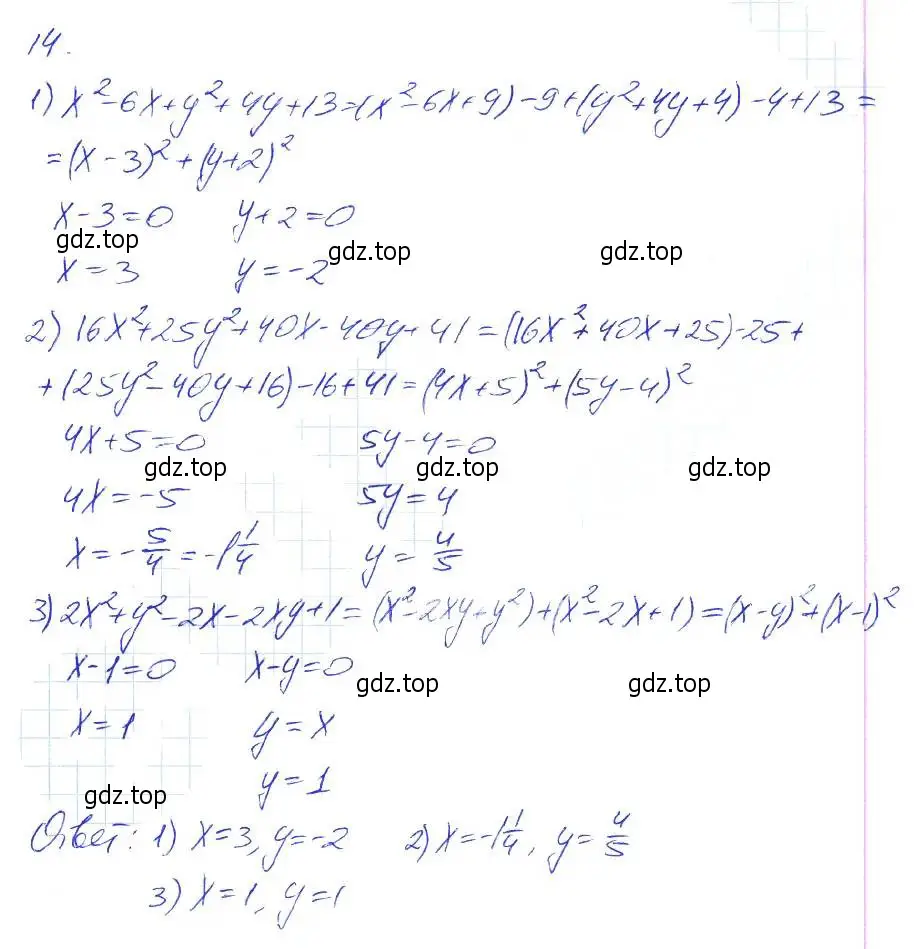 14.
1) x²-6x+y²+4y+13=(x²-6x+9)-9+(y²+4y+4)-4+13=
=(x-3)²+(y+2)²
x-3=0 y+2=0
gdz.top gdz.top gdz.top
x=3 y=-2
2) 16x²+25y²+40x-40y+41=(16x²+40x+25)-25+
+(25y²-40y+16)-16+41=(4x+5)²+(5y-4)²
4x+5=0 5y-4=0
gdz.top gdz.top gdz.top
4x=-5 5y=4
x=-5/4=-1 1/4 y=4/5
3) 2x²+y²-2x-2xy+1=(x²-2xy+y²)+(x²-2x+1)=(x-y)²+(x-1)²
x-1=0 x-y=0
gdz.top gdz.top
x=1 y=x
y=1
gdz.top
Ответ: 1) x=3, y=-2 2) x=-1 1/4, y=4/5
3) x=1, y=1